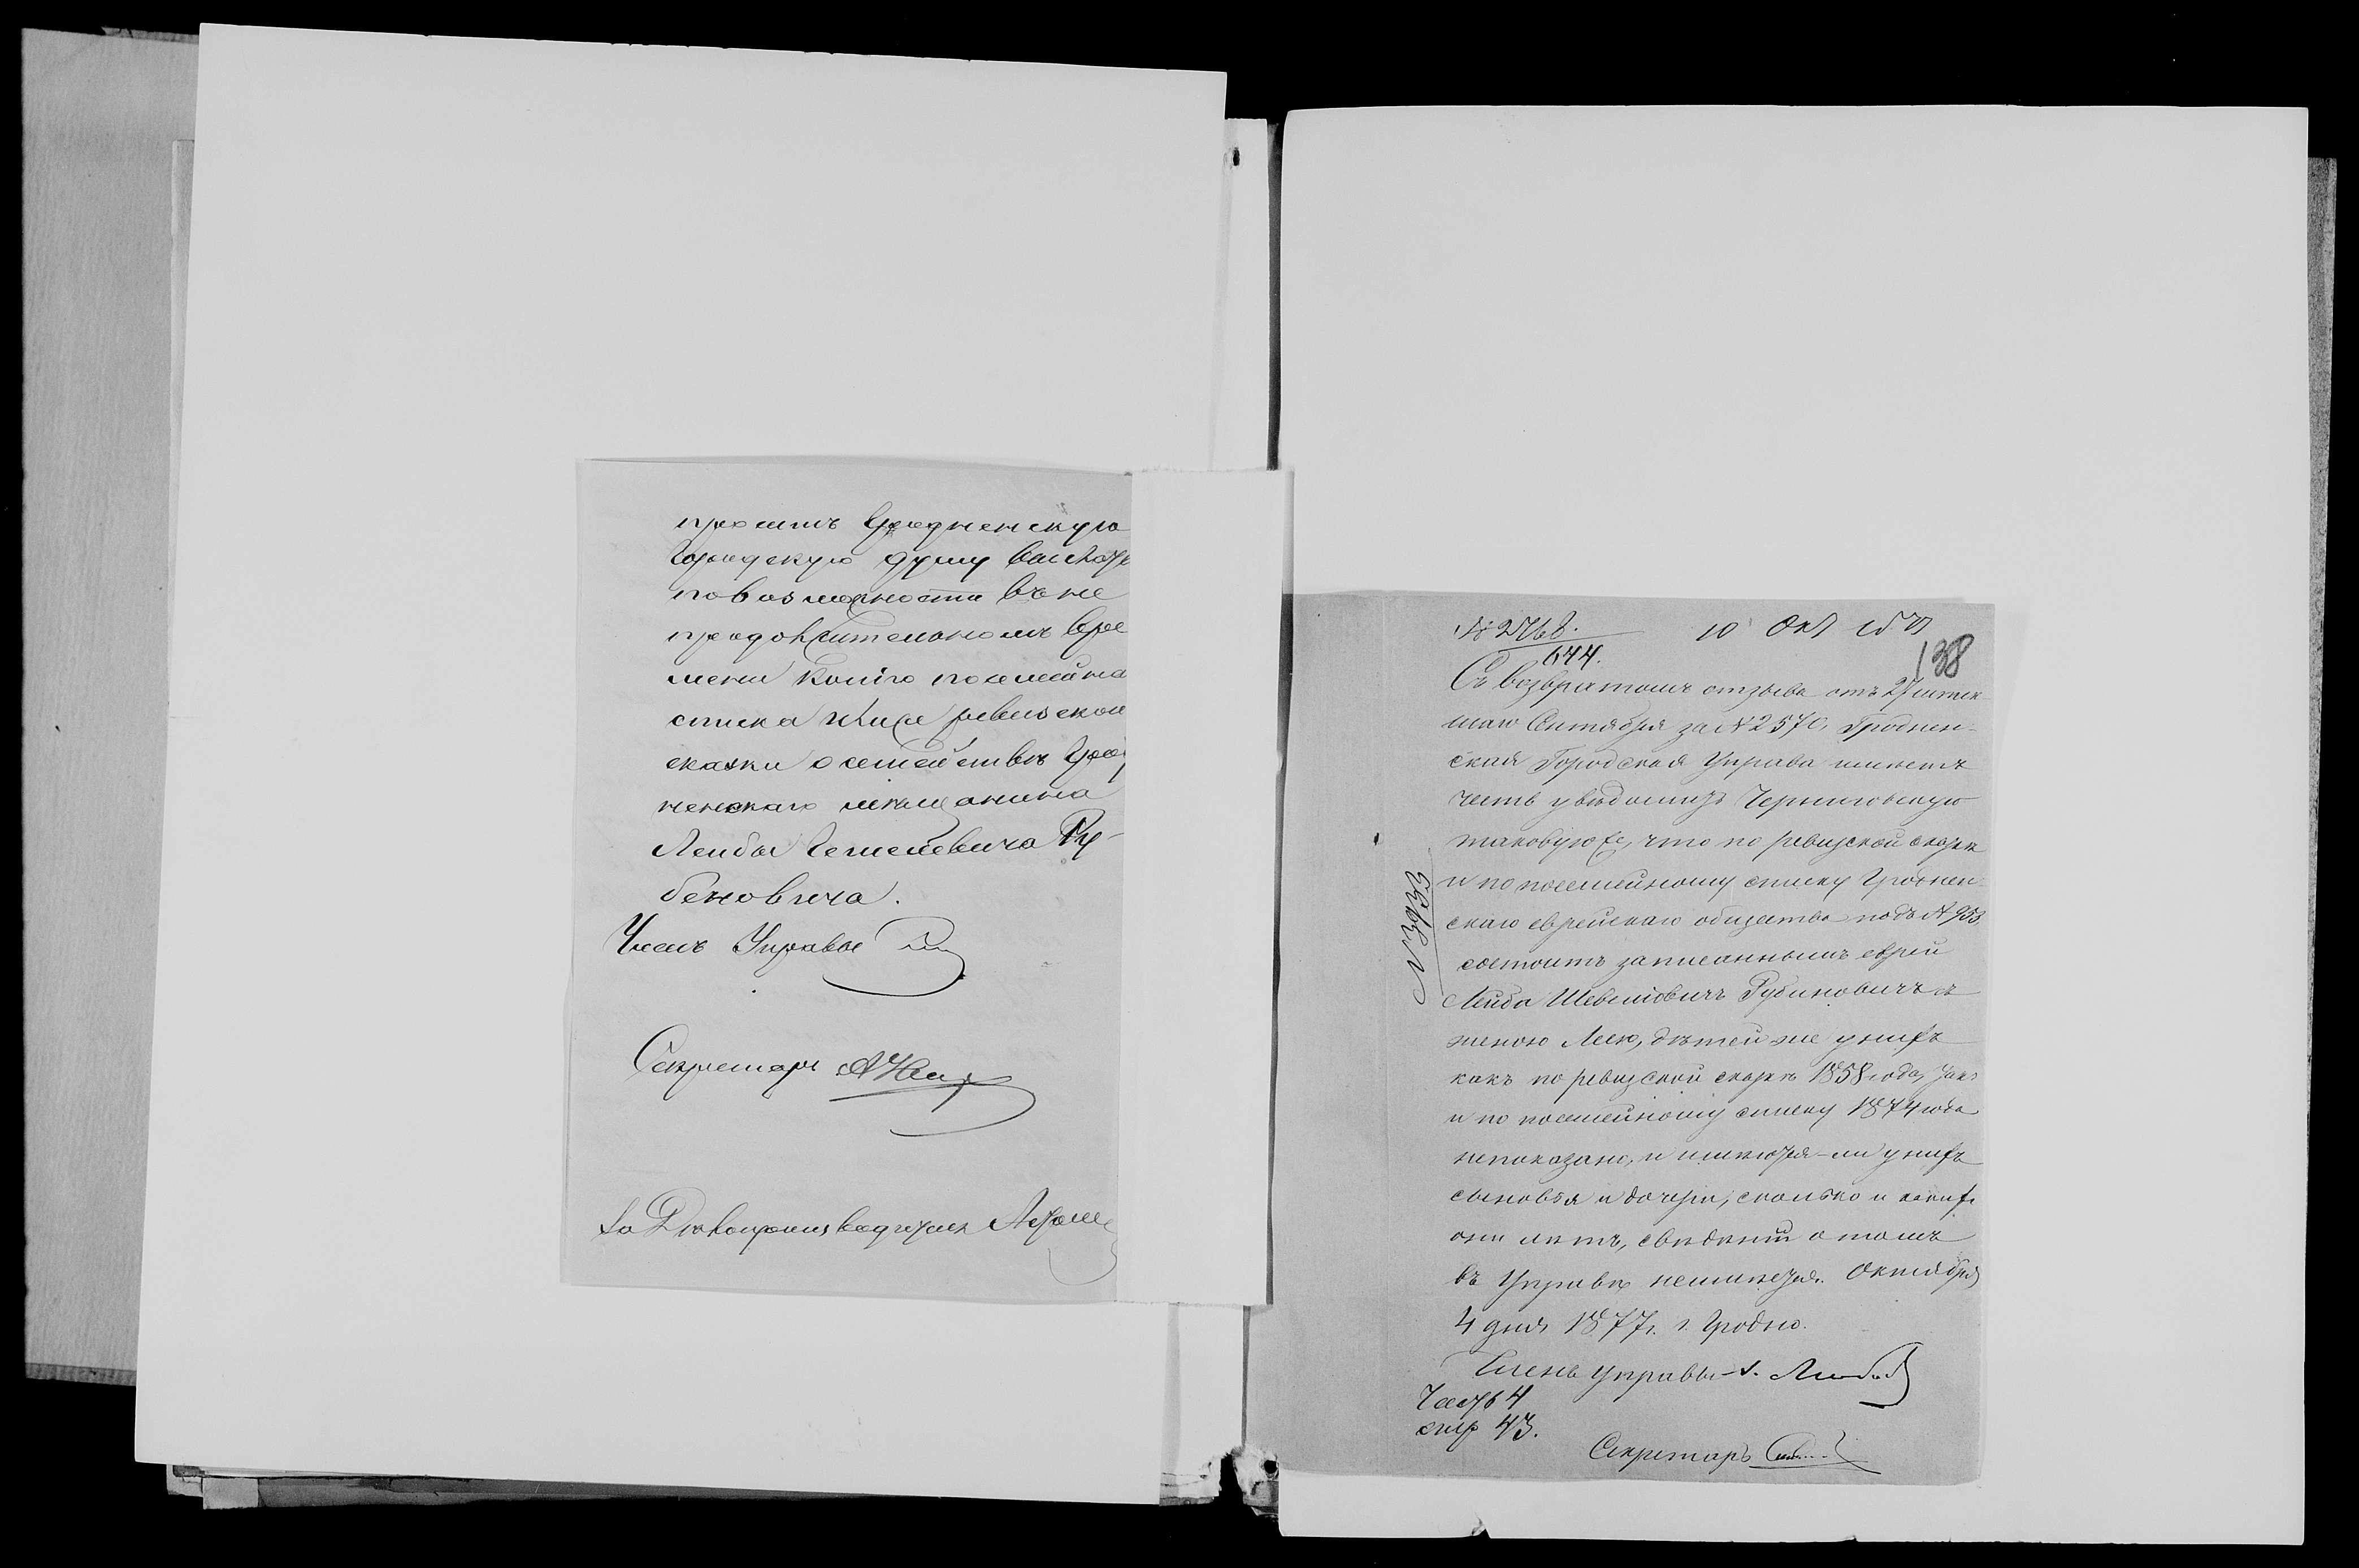 просить Гродненскую
Городскую думу выслать
по возможности въ не
продолжительномъ вре
мени копію посемейна
списка или ревизской
сказки о семействѣ Грод
ненскаго мѣщанина
Лейбы Ру-
беновича.
Членъ Управы
Секретарь
За Дѣлопроизводителя
№ 2768.
644.
10 Окт
138
Съ возвратомъ отзыва отъ 27 истек
шаго Сентября за № 2570, Гроднен-
ская Городская Управа имѣетъ
честь увѣдомить Черниговскую
таковую же, что по ревизской сказкѣ
и по посемейному списку Гроднен-
скаго еврейскаго общества подъ № 953,
состоитъ записаннымъ еврей
Лейба Рубиновичъ съ
женою Леею, дѣтей же у нихъ
какъ по ревизской сказкѣ 1858 года, такъ
и по посемейному списку 1874 года
непоказано, и имѣются-ли у нихъ
сыновья и дочери, сколько и какихъ
они лѣтъ, свѣдѣній о томъ
въ Управѣ неимѣется. Октября
4 дня 1877 г. г. Гродно.
Членъ Управы
Часть 4
стр 43.
Секретарь